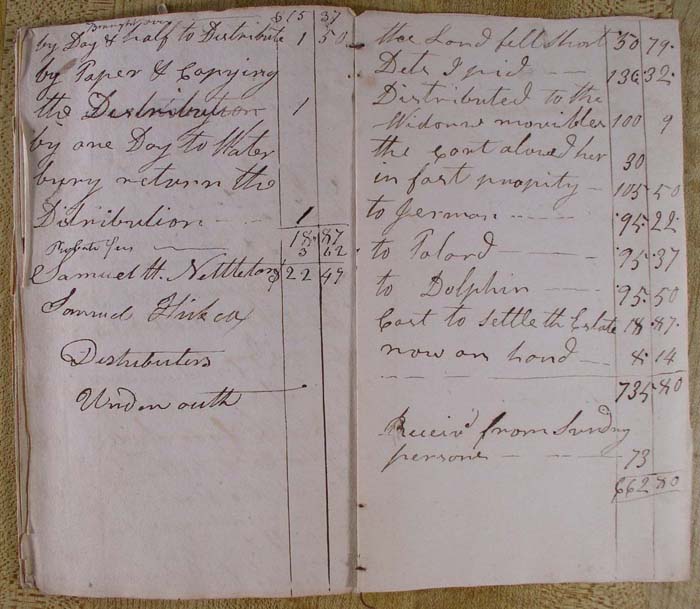 Brought over $15 37
by Day & half to Distribute 1 50
by Paper & Copying
the Distribution 1
by one Day to Water
bury return the
Distribution 1
18 87
Probate fees 3 62
Samuel H. Nettleton $22 49
Samuel Hickcox
Distributers
Under oath
the Land fell short 50 79
Dets I paid 136 32
Distributed to the
Widowe movibles 100 9
the Cort alowed her 30
in fast propity 105 50
to Jerman 95 22
to Tolard 95 37
to Dolphin 95 50
Cost to Settle th Estate 18 87
now on hand 8 14
735 80
Receivd from Sundry
persons 73
662 80